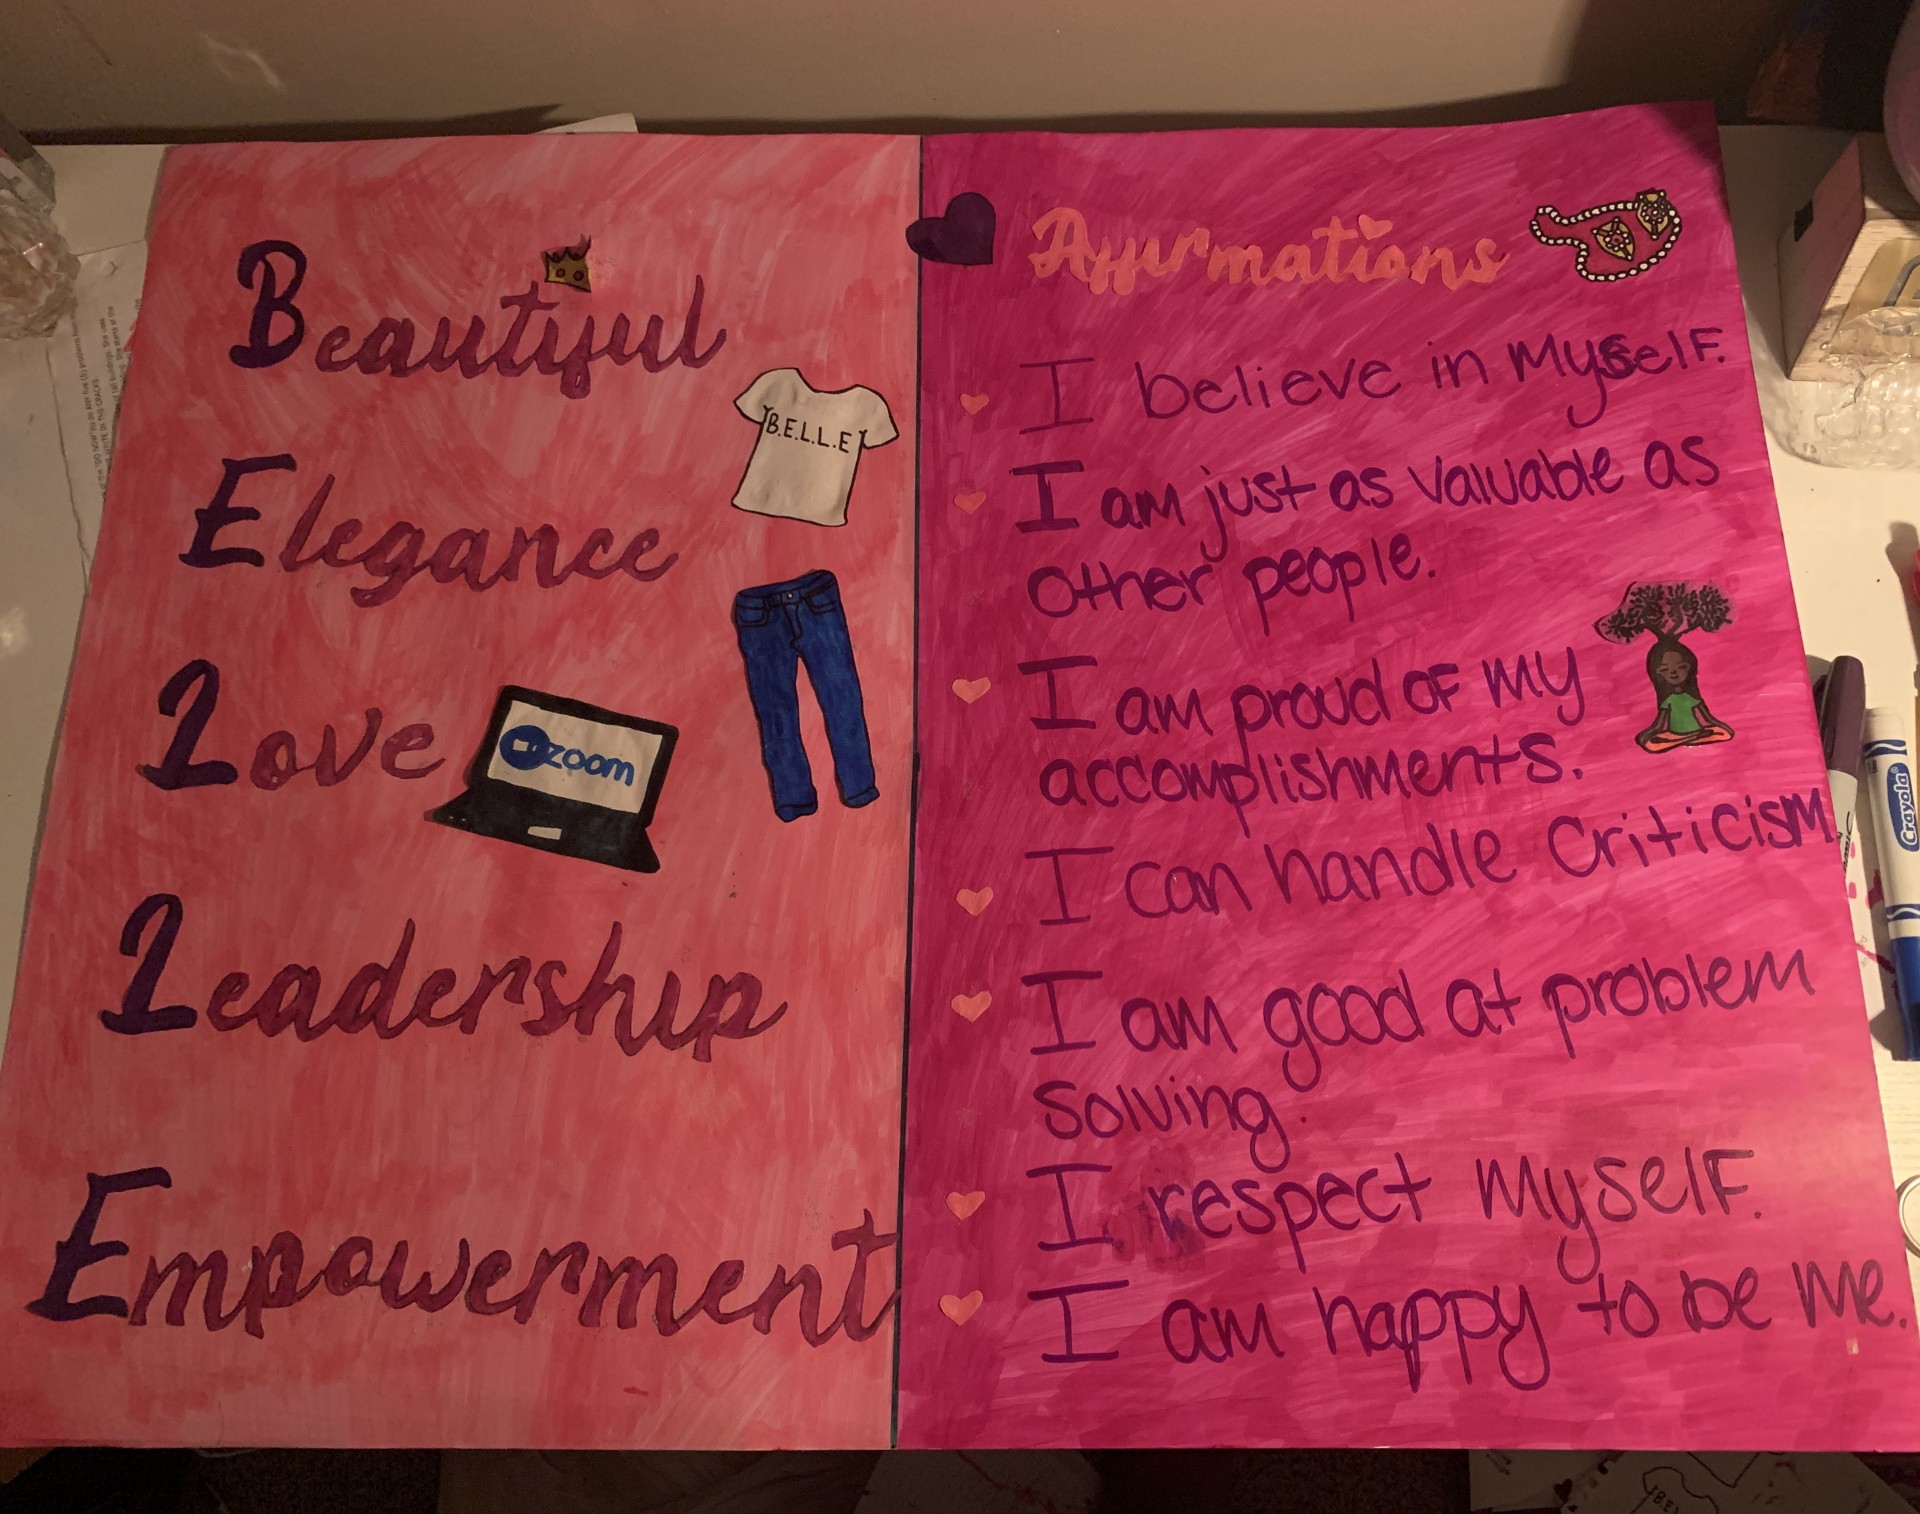 Beautiful
B.E.L.L.E
Elegance
Love
zoom
Leadership
Empowerment
Affirmations
I believe in myself.
I am just as valuable as
other people.
I am proud of my
accomplishments.
I can handle criticism
I am good at problem
solving.
I respect myself.
I am happy to be me.
Crayola